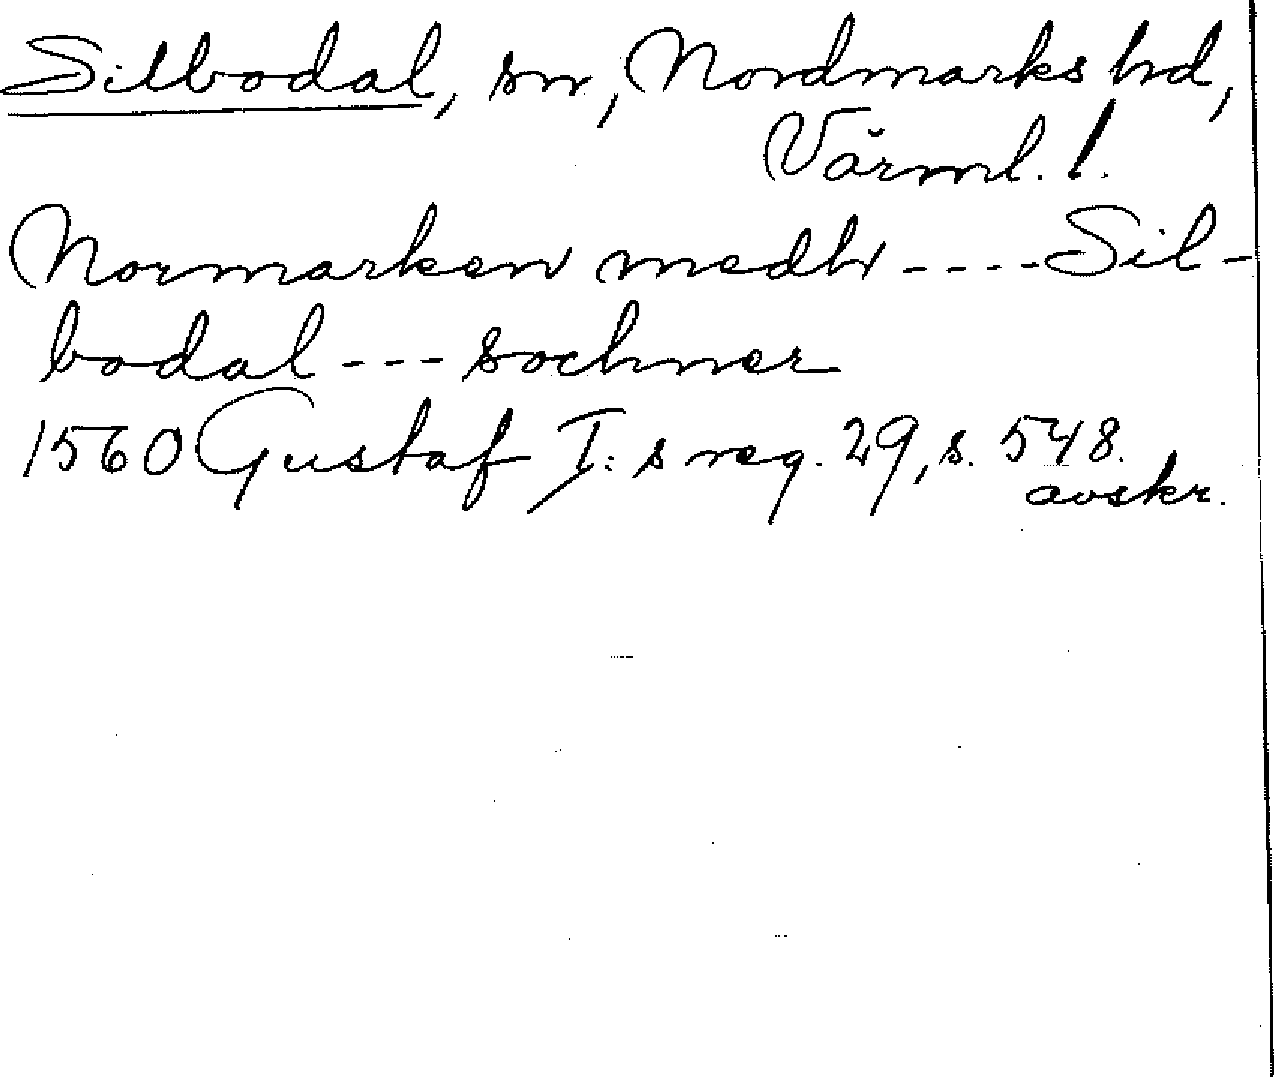 Silbodal, sn, Nordmarks hd,
Värml. l.
Normarken medh ---- Sil-
bodal --- sochner
1560 Gustaf I:s reg. 29, s. 548.
avskr.